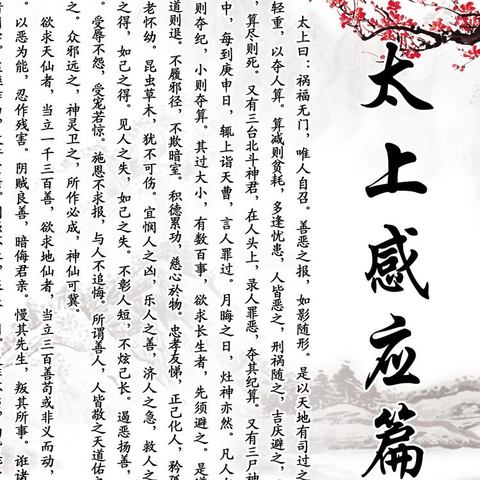 太上感应篇
太上曰：祸福无门，唯人自召。善恶之报，如影随形。是以天地有司过之
轻重，以夺人算。算减则贫耗，多逢忧患，人皆恶之，刑祸随之，吉庆避之，
，算尽则死。又有三台北斗神君，在人头上，录人罪恶，夺其纪算。又有三尸神
中，每到庚申日，辄上诣天曹，言人罪过。月晦之日，灶神亦然。凡人
则夺纪，小则夺算。其过大小，有数百事，欲求长生者，先须避之。是
道则退。不履邪径，不欺暗室。积德累功，慈心於物。忠孝友悌，正己化人，矜
老怀幼。昆虫草木，犹不可伤。宜悯人之凶，乐人之善，济人之急，救人之
之得，如己之得。见人之失，如己之失。不彰人短，不炫己长。遏恶扬善，
。受辱不怨，受宠若惊。施恩不求报，与人不追悔。所谓善人，人皆敬之天道佑之
之。众邪远之，神灵卫之，所作必成，神仙可冀。
欲求天仙者，当立一千三百善，欲求地仙者，当立三百善苟或非义而动，
。以恶为能，忍作残害。阴贼良善，暗侮君亲。慢其先生，叛其所事。诳诸